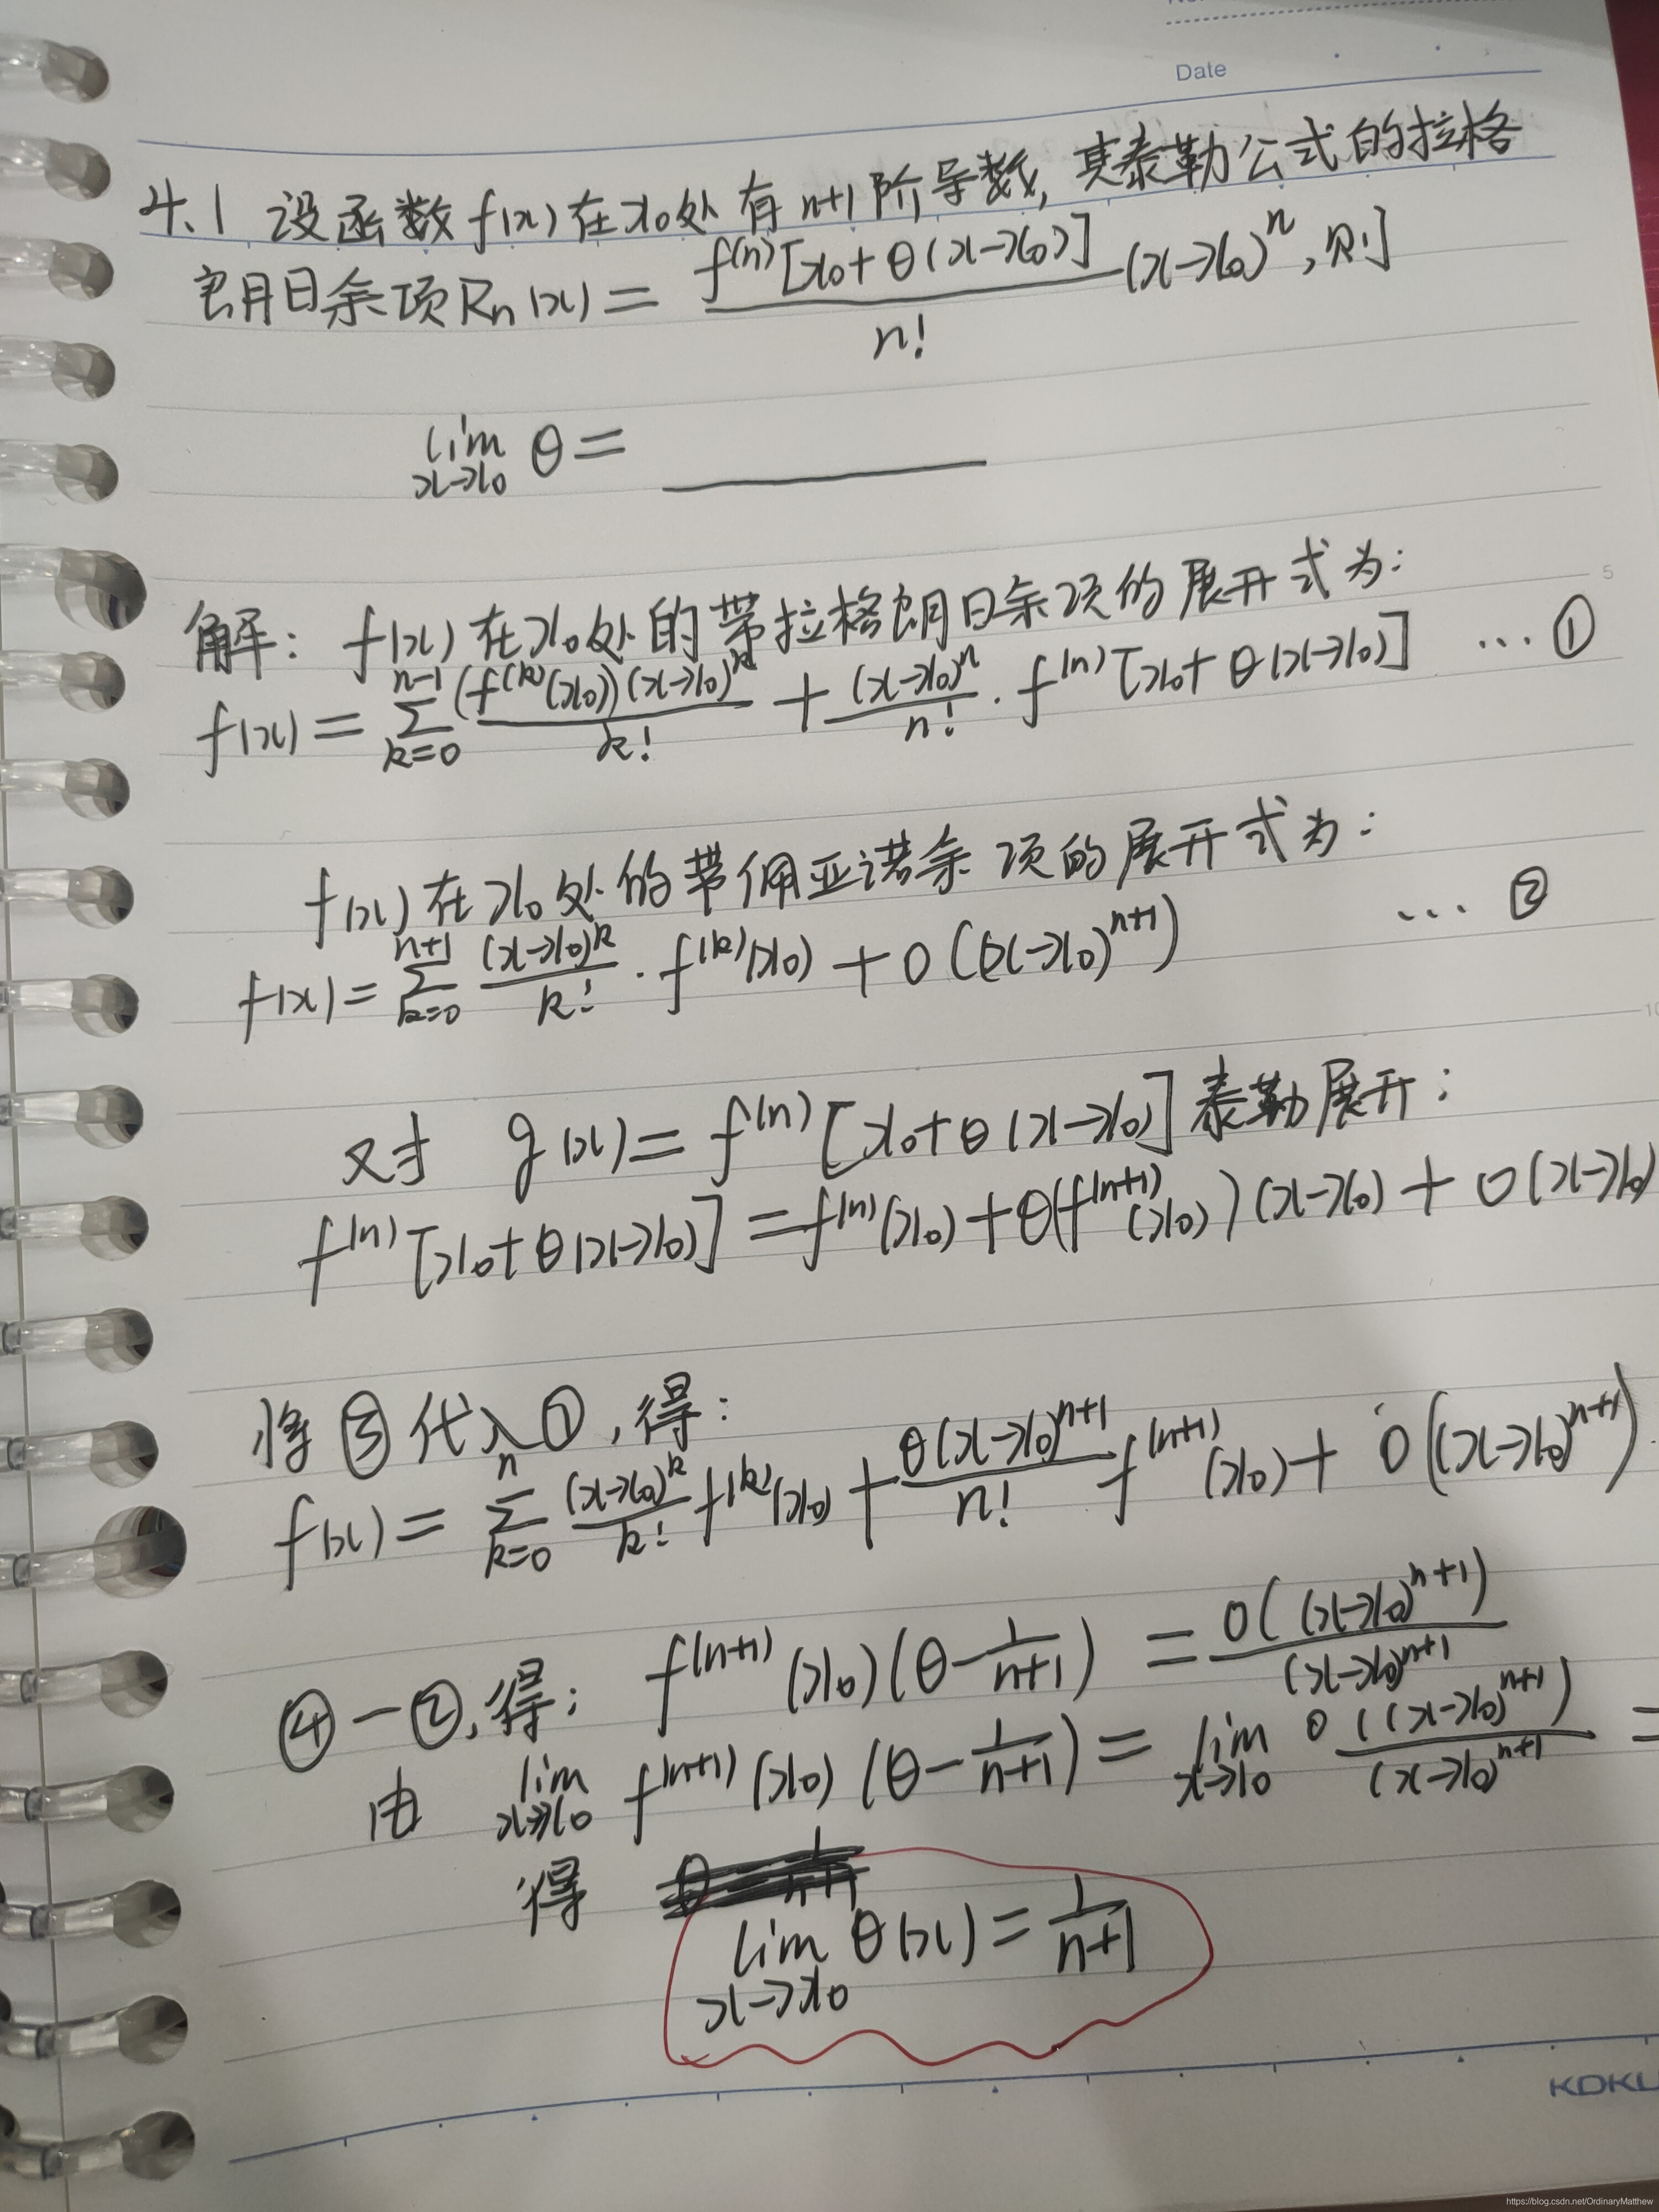 Date
4.1 设函数f(x)在x₀处有n+1阶导数,其泰勒公式的拉格
朗日余项Rₙ(x) = f⁽ⁿ⁾[x₀+θ(x-x₀)]/n! (x-x₀)ⁿ, 则
lim x→x₀ θ = ______
解: f(x)在x₀处的带拉格朗日余项的展开式为:
5
f(x) = Σ_{k=0}^{n-1} (f⁽ᵏ⁾(x₀))(x-x₀)ᵏ/k! + (x-x₀)ⁿ/n! · f⁽ⁿ⁾[x₀+θ(x-x₀)] … ①
f(x)在x₀处的带佩亚诺余项的展开式为:
f(x) = Σ_{k=0}^{n+1} (x-x₀)ᵏ/k! · f⁽ᵏ⁾(x₀) + o((x-x₀)ⁿ⁺¹) … ②
10
又对 g(x) = f⁽ⁿ⁾[x₀+θ(x-x₀)] 泰勒展开:
f⁽ⁿ⁾[x₀+θ(x-x₀)] = f⁽ⁿ⁾(x₀) + θ(f⁽ⁿ⁺¹⁾(x₀))(x-x₀) + o(x-x₀)
将③代入①,得:
f(x) = Σ_{k=0}^{n} (x-x₀)ᵏ/k! f⁽ᵏ⁾(x₀) + θ(x-x₀)ⁿ⁺¹/n! f⁽ⁿ⁺¹⁾(x₀) + o((x-x₀)ⁿ⁺¹)
④-②,得: f⁽ⁿ⁺¹⁾(x₀)(θ - 1/(n+1)) = o((x-x₀)ⁿ⁺¹)/(x-x₀)ⁿ⁺¹
由 lim x→x₀ f⁽ⁿ⁺¹⁾(x₀)(θ - 1/(n+1)) = lim x→x₀ o((x-x₀)ⁿ⁺¹)/(x-x₀)ⁿ⁺¹ =
得
lim x→x₀ θ(x) = 1/(n+1)
https://blog.csdn.net/OrdinaryMatthew